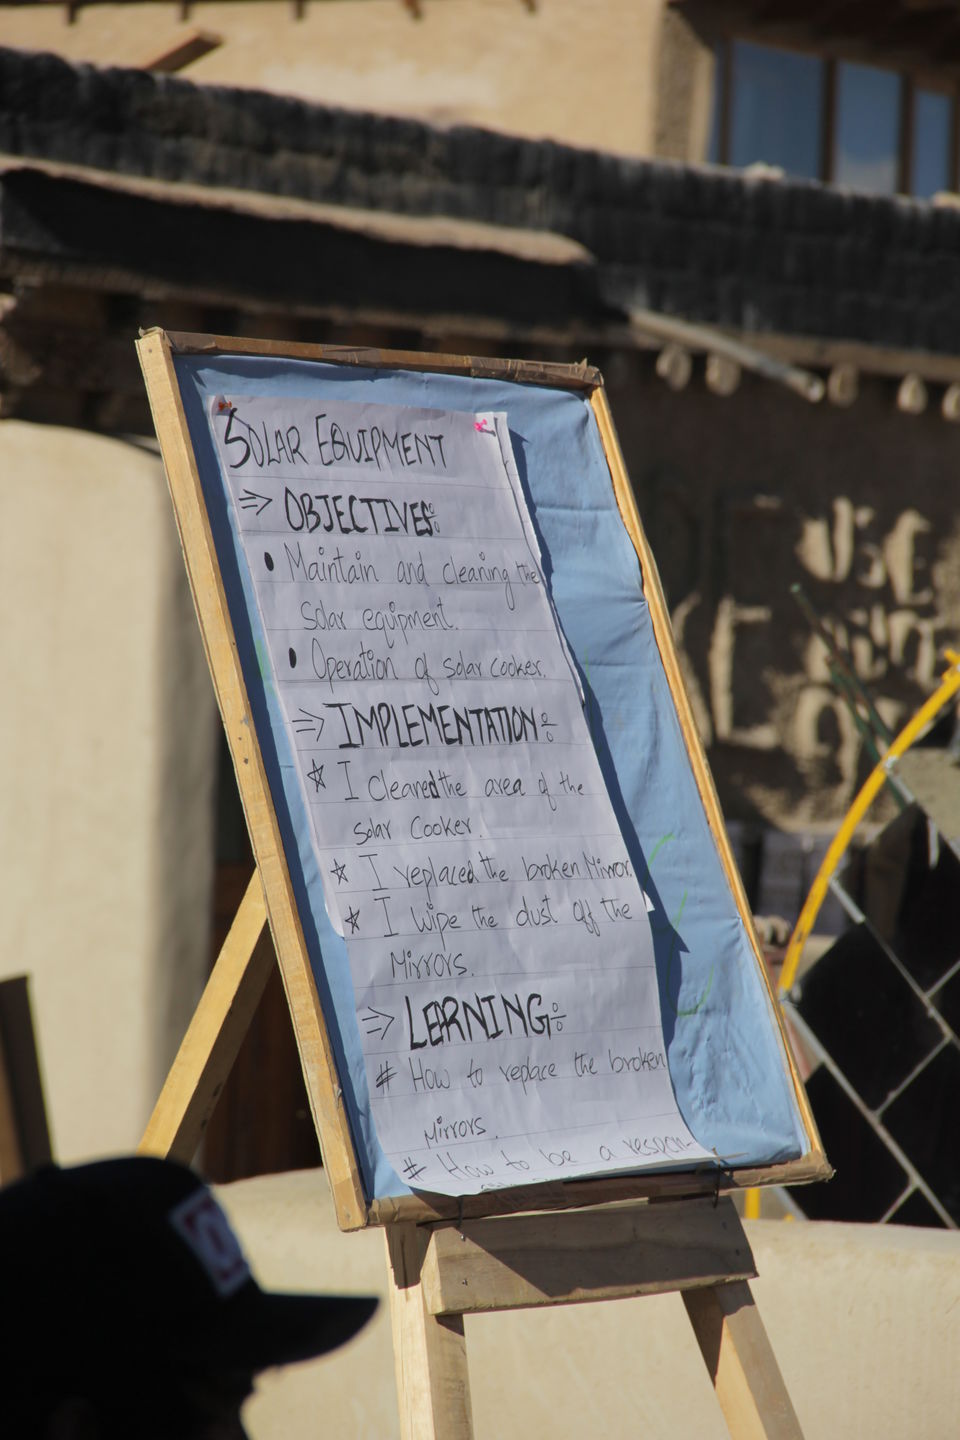 SOLAR EQUIPMENT
⇒ OBJECTIVES÷
• Maintain and cleaning the
solar equipment.
• Operation of solar cooker.
⇒ IMPLEMENTATION÷
☆ I Cleaned the area of the
Solar Cooker.
☆ I replaced the broken Mirror.
☆ I wipe the dust off the
Mirrors.
⇒ LEARNING÷
# How to replace the broken
Mirrors.
# How to be a respon-